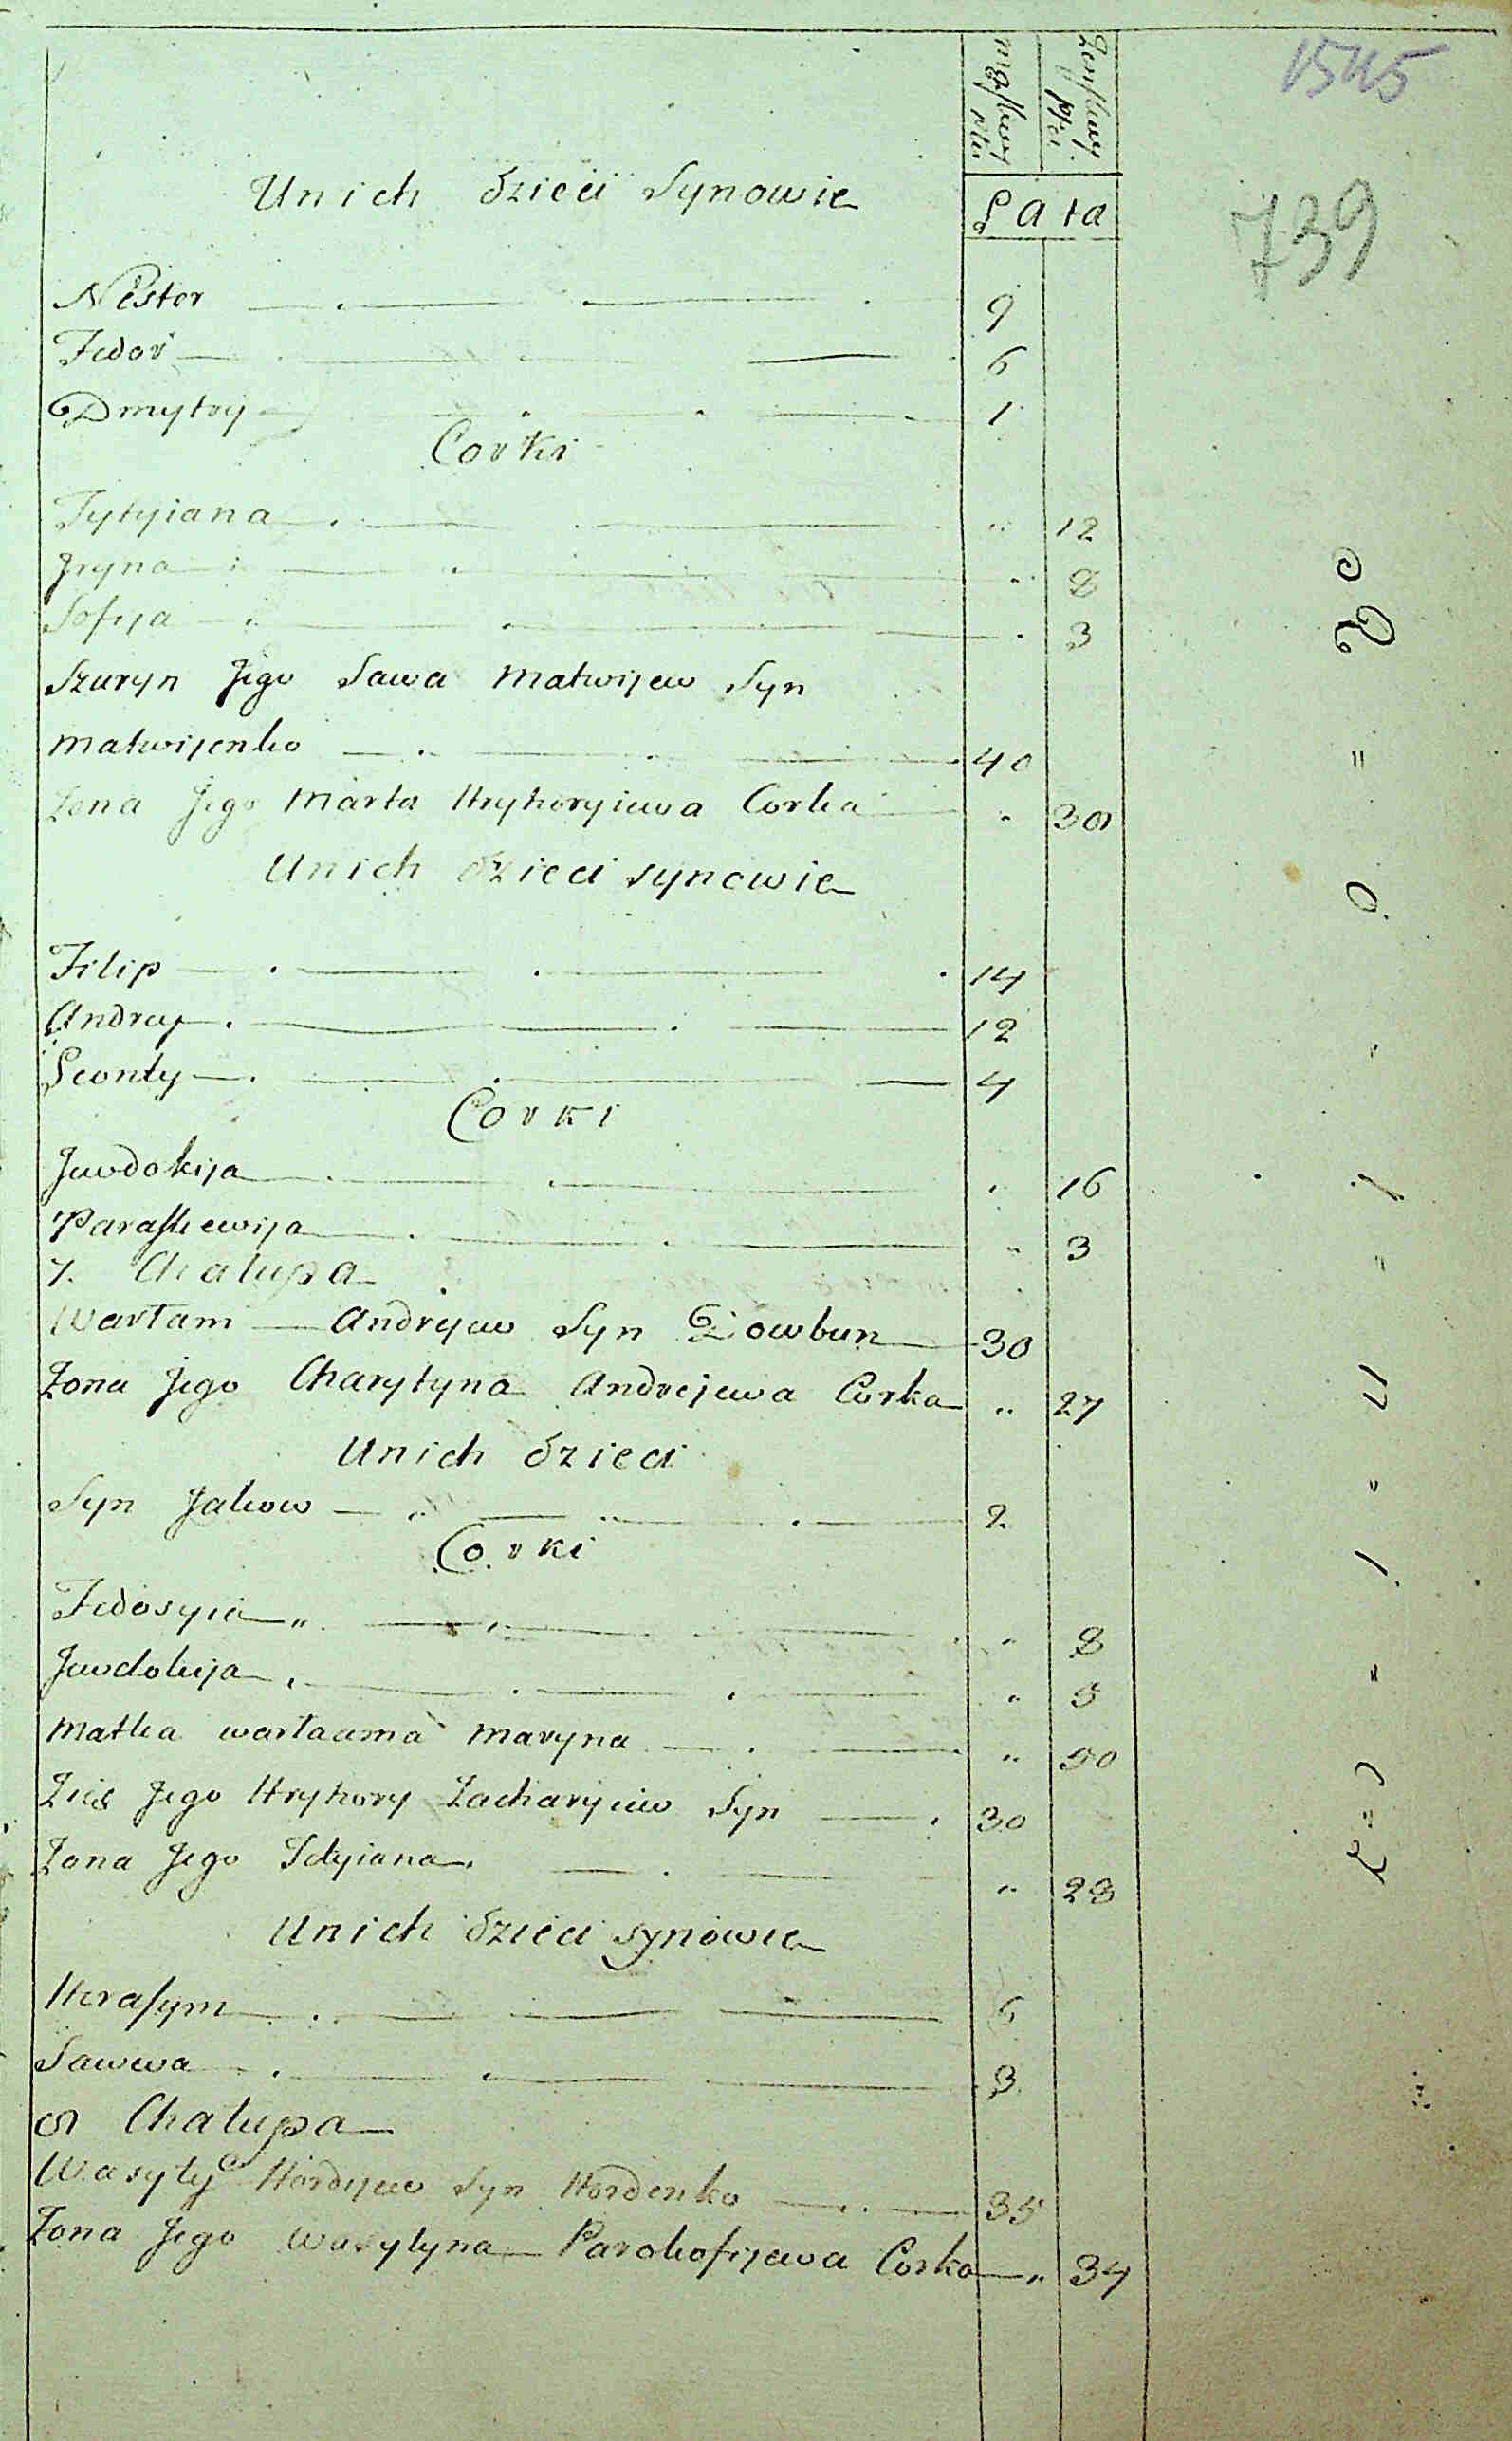 1545
739
męskiey płci
Żeńskiey płci
Lata
Unich dzieci Synowie
Nestor 9
Fedor 6
Dmytry 1
Corki
Tytyiana " 12
Jryna " 8
Sofija " 3
Szuryn Jego Sawa Matwijew Syn
Matwijenko 40
Żona Jego Marta Hryhoryiewa Corka " 30
Unich dzieci synowie
Filip 14
Andrey 12
Leonty 4
Corki
Jewdokija " 16
Paraskewija " 3
7. Chałupa
Warłam Andryjew Syn Dowbun 30
Żona Jego Charytyna Andrejewa Corka " 27
Unich dzieci
Syn Jakow 2
Corki
Fedosyia " 8
Jewdokija " 5
Matka warłaama Maryna " 50
Zięć Jego Hryhory Zacharyiew Syn 30
Żona Jego Tetyiana " 23
Unich dzieci synowie
Herasym 6
Sawwa 3
8 Chałupa
Wasyly Hordyjew Syn Hordenko 35
Żona Jego Wasylyna Parokofijewa Corka " 34